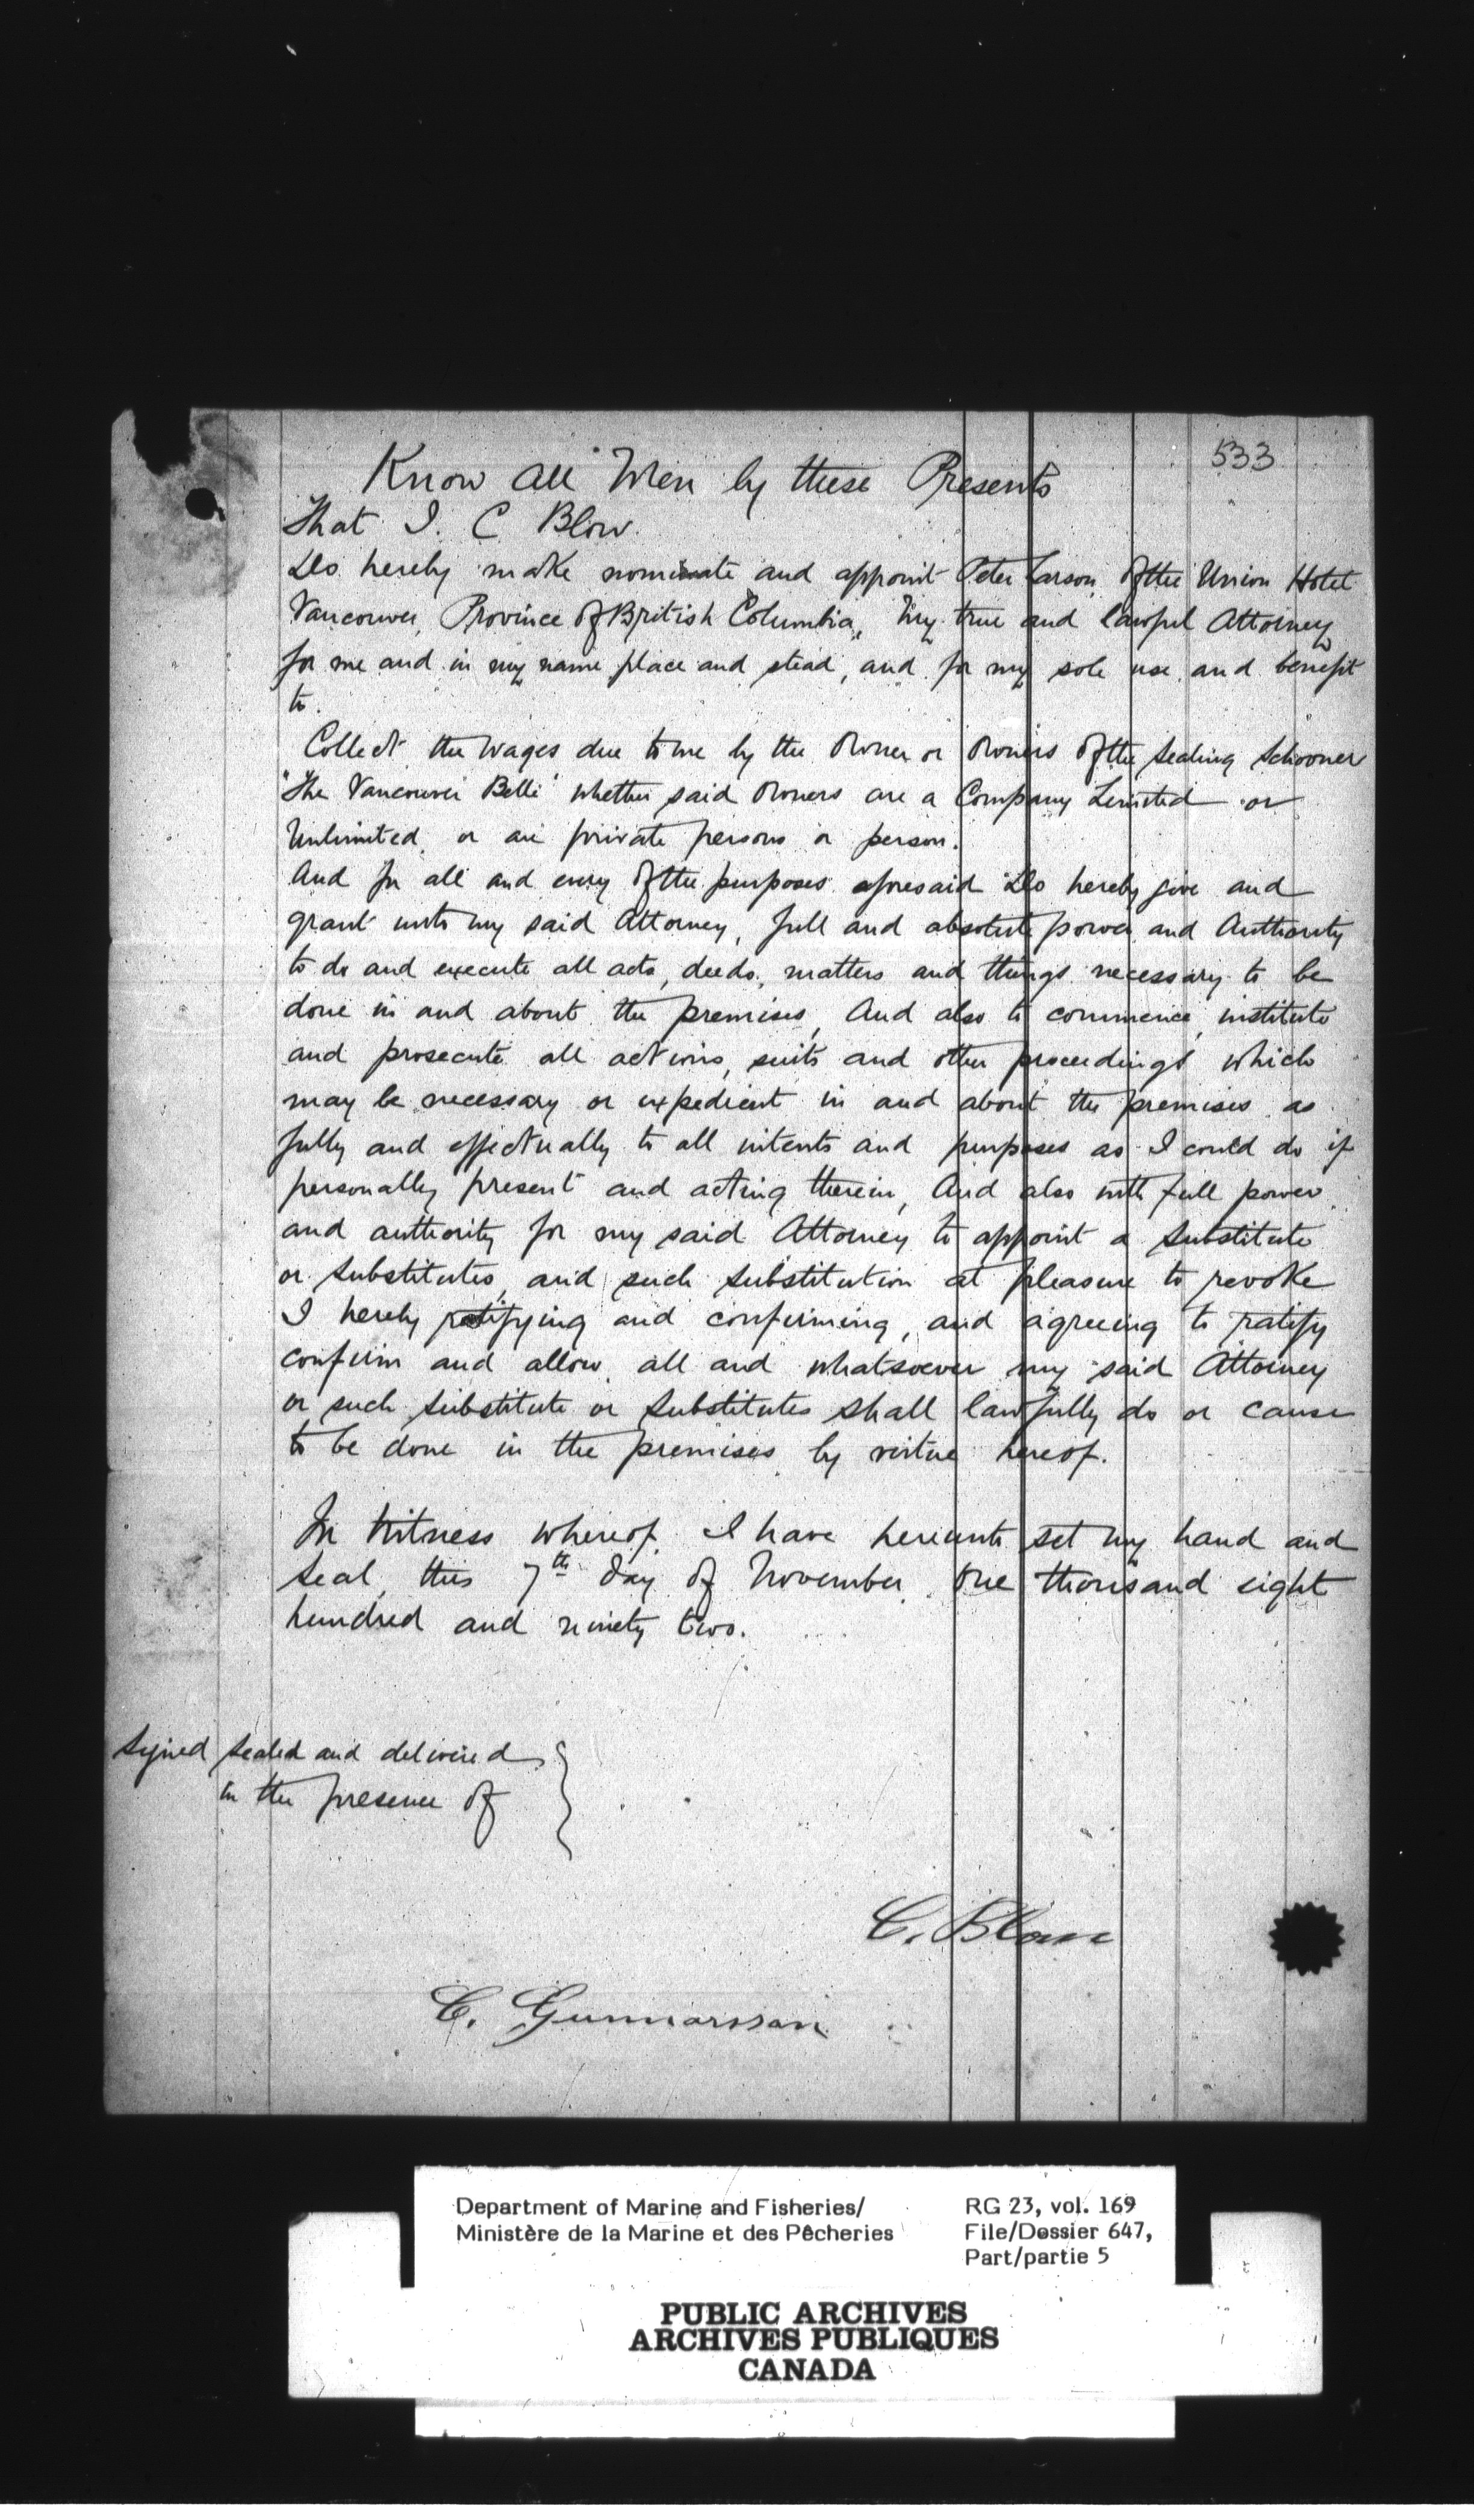 533
Know all Men by these Presents
That I. C Blow.
Do hereby make nominate and appoint Peter Larson, of the Union Hotel
Vancouver, Province of British Columbia, My true and lawful Attorney
for me and in my name place and stead, and for my sole use and benefit
to.
Collect the wages due to me by the Owner or Owners of the Sealing Schooner
"The Vancouver Belle" whether said Owners are a Company Limited or
Unlimited, or are private persons or person.
And for all and every of the purposes aforesaid Do hereby give and
grant unto my said Attorney, full and absolute power and Authority
to do and execute all acts, deeds, matters and things necessary to be
done in and about the premises, And also to commence, institute
and prosecute all actions, suits and other proceedings which
may be necessary or expedient in and about the premises as
fully and effectually to all intents and purposes as I could do if
personally present and acting therein, And also with full power
and authority for my said Attorney to appoint a substitute
or substitutes, and such substitution at pleasure to revoke
I hereby ratifying and confirming, and agreeing to ratify
confirm and allow all and whatsoever my said Attorney
or such substitute or substitutes shall lawfully do or cause
to be done in the premises by virtue hereof.
In Witness whereof, I have hereunto set my hand and
Seal, this 7th day of November One thousand eight
hundred and ninety two.
Signed Sealed and delivered
in the presence of
C. Blow
C. Gunnarsson
Department of Marine and Fisheries/
Ministère de la Marine et des Pêcheries
RG 23, vol. 169
File/Dossier 647,
Part/partie 5
PUBLIC ARCHIVES
ARCHIVES PUBLIQUES
CANADA